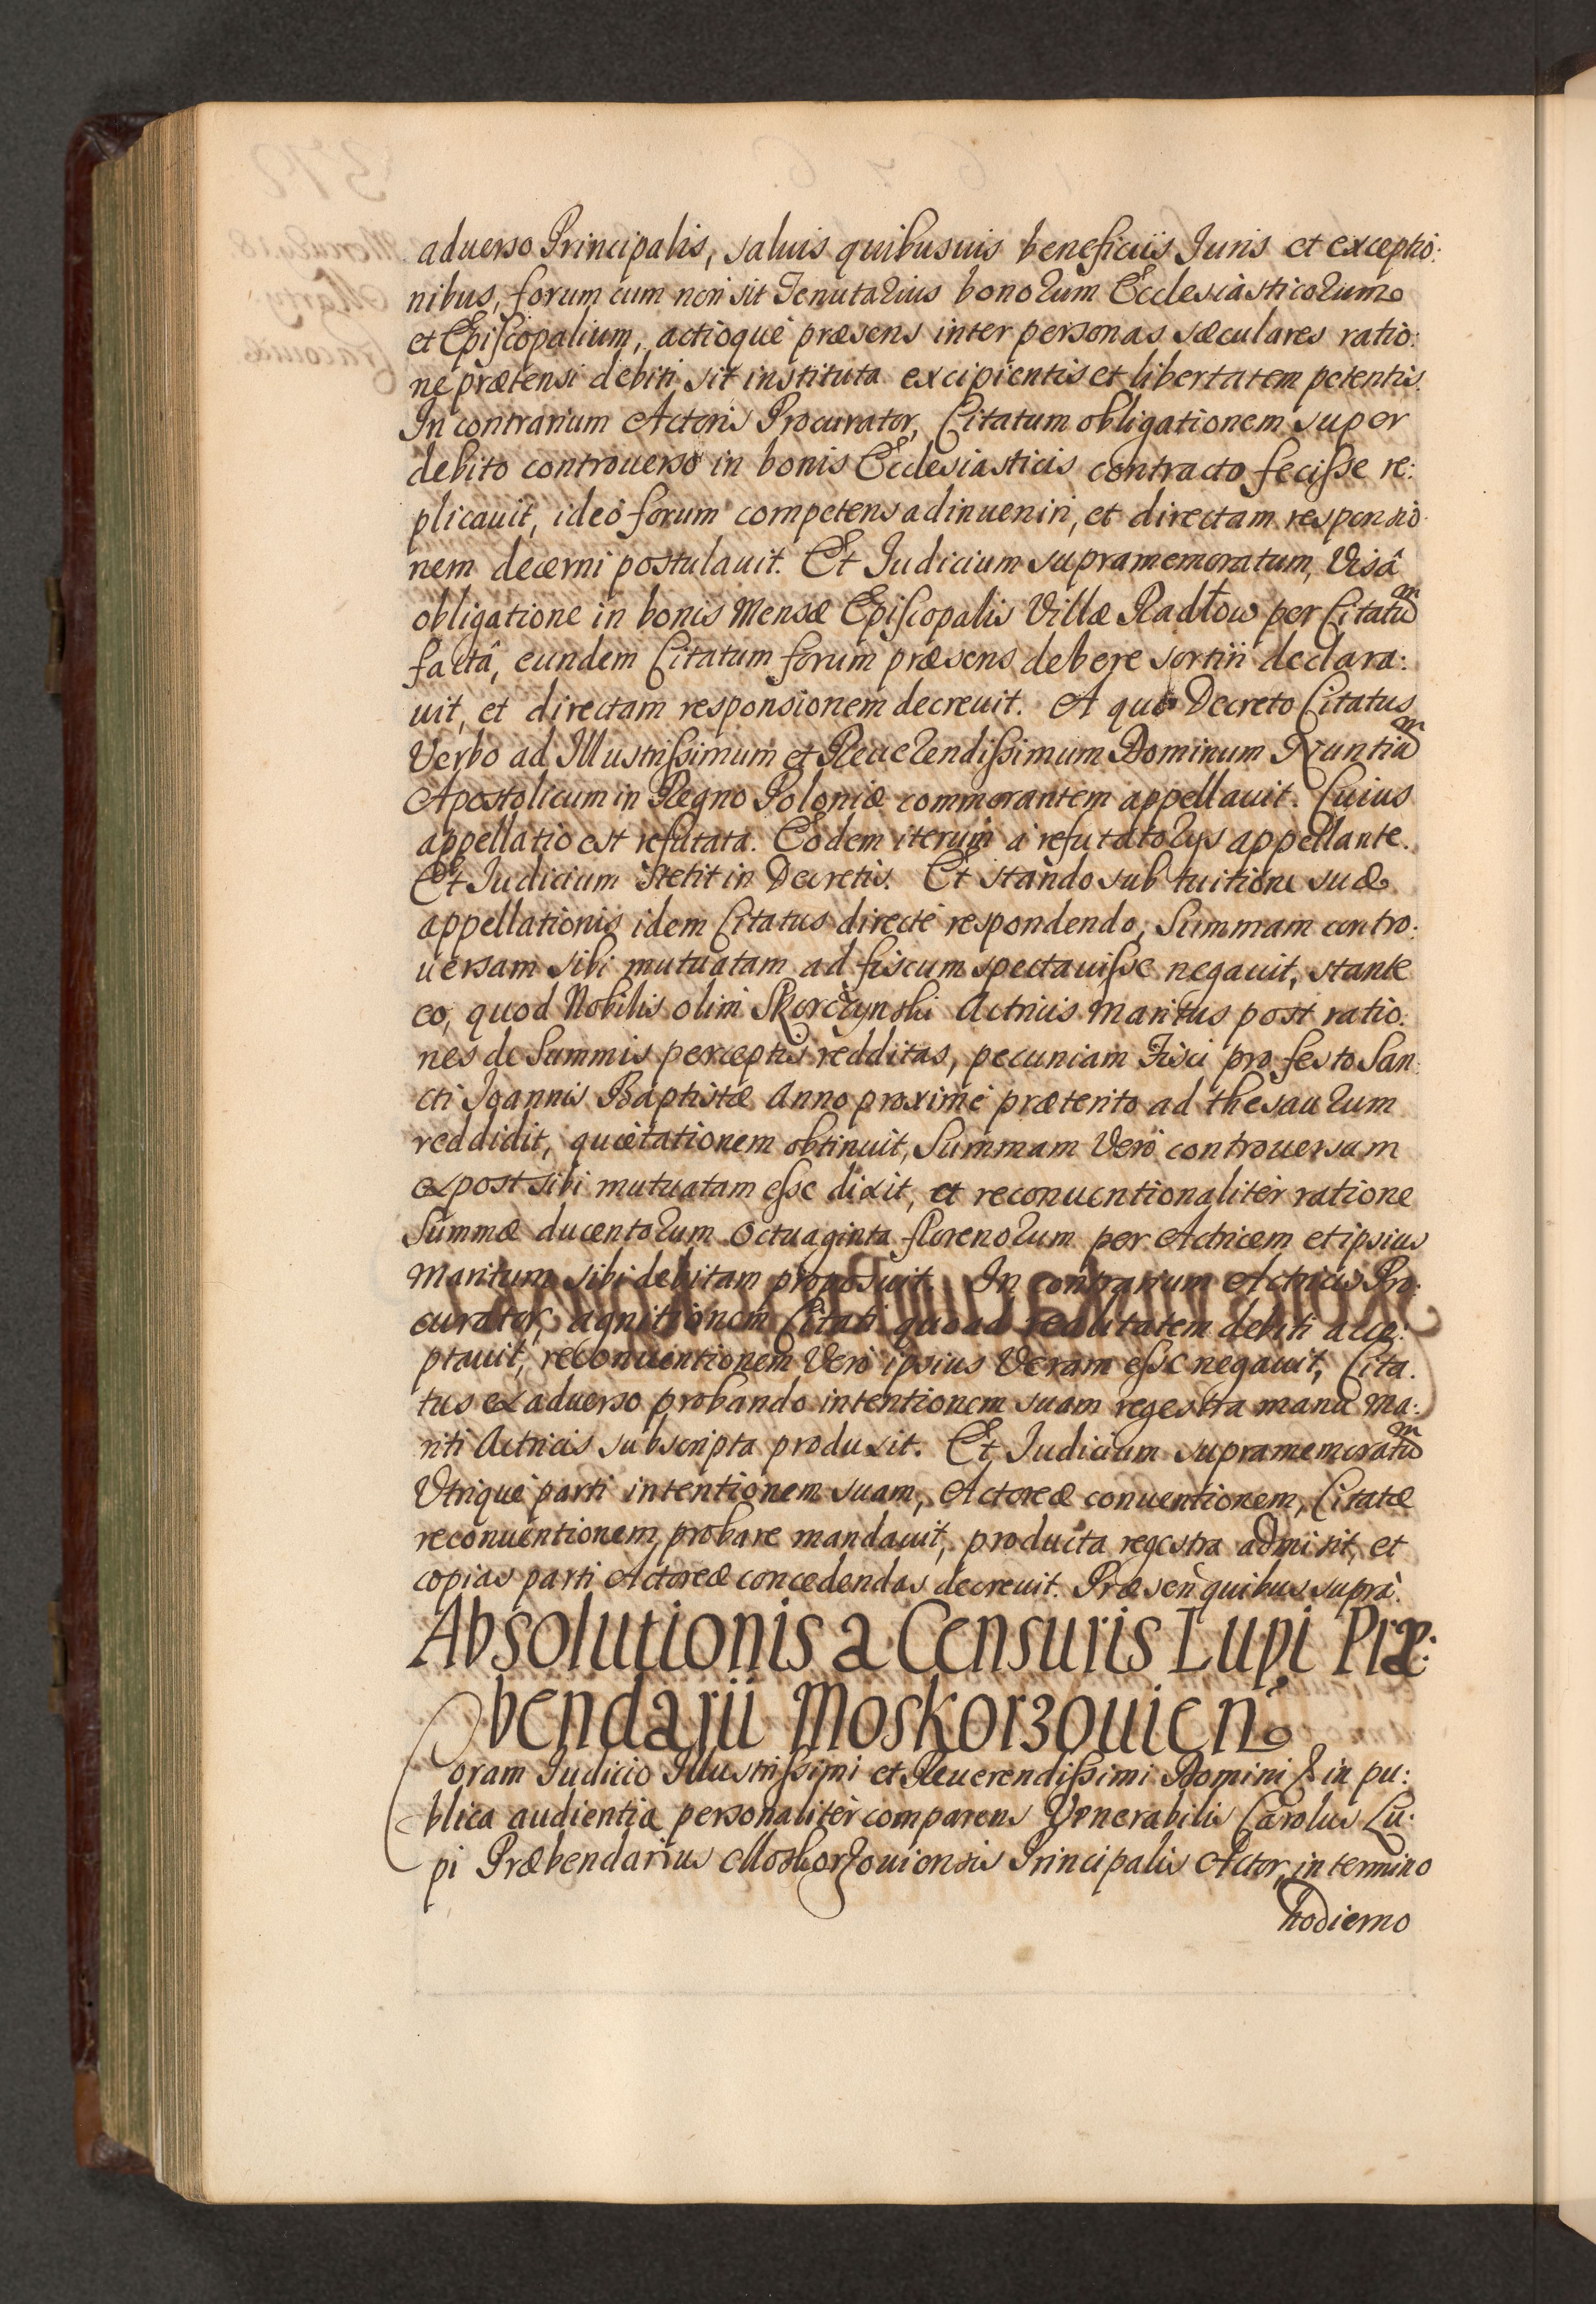 aduerso Principalis, saluis quibusuis beneficiis Juris et exceptio:
nibus, forum cum non sit Tenutarius bonorum Ecclesiasticorum
et Episcopalium, actioque praesens inter personas saeculares ratio:
ne praetensi debiti sit instituta excipientis et libertatem petentis.
In contrarium Actoris Procurator, Citatum obligationem super
debito controuerso in bonis Ecclesiasticis contracto fecisse re:
plicauit, ideó forum competens adinueniri, et directam responsio:
nem decerni postulauit. Et Judicium supramemoratum, Visâ
obligatione in bonis Mensae Episcopalis Villae Radłow per Citatũ
factâ, eundem Citatum forum praesens debere sortiri declara:
uit, et directam responsionem decreuit. A quo Decreto Citatus
Verbo ad Illustrissimum et Reuerendissimum Dominum Nuntiũ
Apostolicum in Regno Poloniae commorantem appellauit. Cuius
appellatio est refutata. Eodem iterum á refutatorys appellante.
Et Judicium stetit in Decretis. Et stando sub tuitione suae
appellationis idem Citatus directé respondendo, Summam contro:
uersam sibi mutuatam ad fiscum spectauisse negauit, stante
eo, quod Nobilis olim Skorczynski Actricis Maritus post ratio:
nes de Summis perceptis redditas, pecuniam Fisci pro festo San:
cti Joannis Baptistae Anno proximé praeterito ad thesaurum
reddidit, quietationem obtinuit, Summam Veró controuersam
ex post sibi mutuatam esse dixit, et reconuentionaliter ratione
Summae ducentorum octuaginta florenorum per Actricem et ipsius
Maritum sibi debitam proposuit. In contrarium Actricis Pro:
curator, agnitionem Citati quoad realitatem debiti acce:
ptauit, reconuentionem Veró ipsius Veram esse negauit, Cita:
tus ex aduerso probando intentionem suam regestra manu Ma:
riti Actricis subscripta produxit. Et Judicium supramemoratũ
Utrique parti intentionem suam, Actoreae conuentionem, Citatae
reconuentionem, probare mandauit, producta regestra admisit, et
copias parti Actoreae concedendas decreuit. Praesen quibus suprà.
Absolutionis a Censuris Lupi Prae:
bendarii Moskorzouien
Coram Judicio Illustrissimi et Reuerendissimi Domini & in pu:
blica audientia personaliter comparens Venerabilis Carolus Lu:
pi Praebendarius Moskorzouiensis Principalis Actor, in termino
hodierno